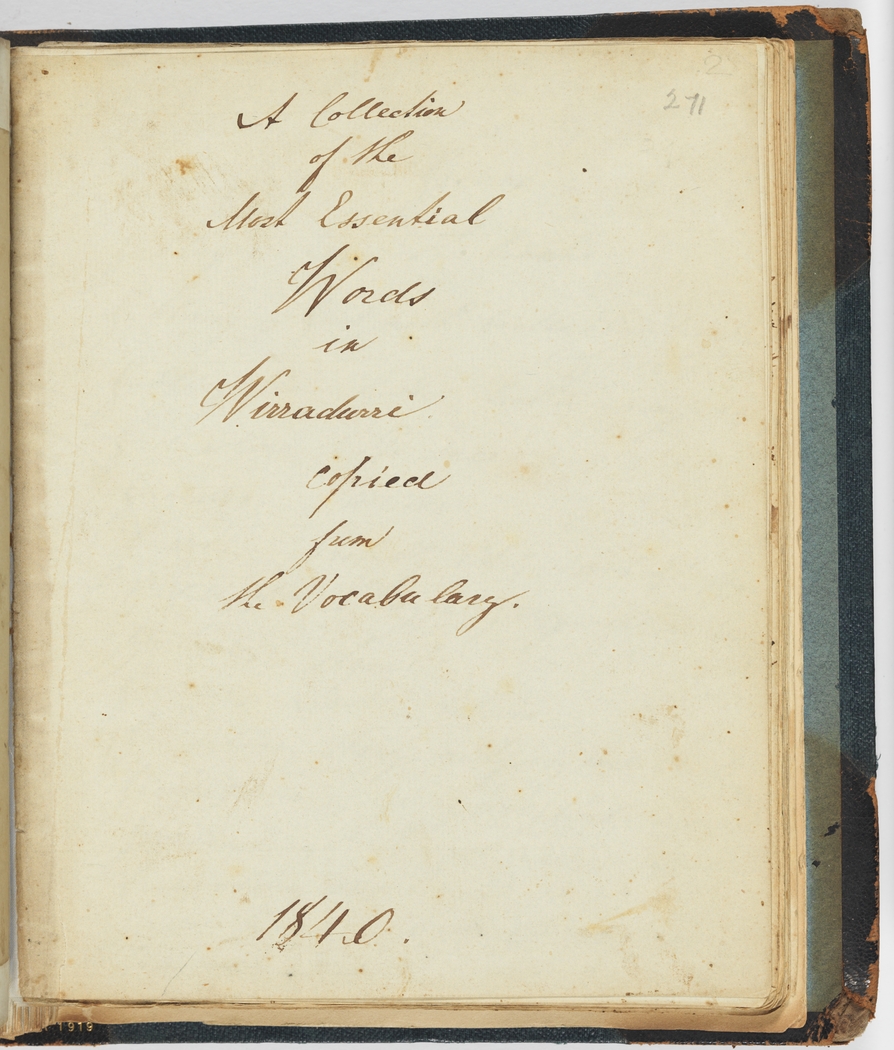 2
271
A Collection
of the
Most Essential
Words
in
Wirradurri
copied
from
the Vocabulary.
1840.
1919